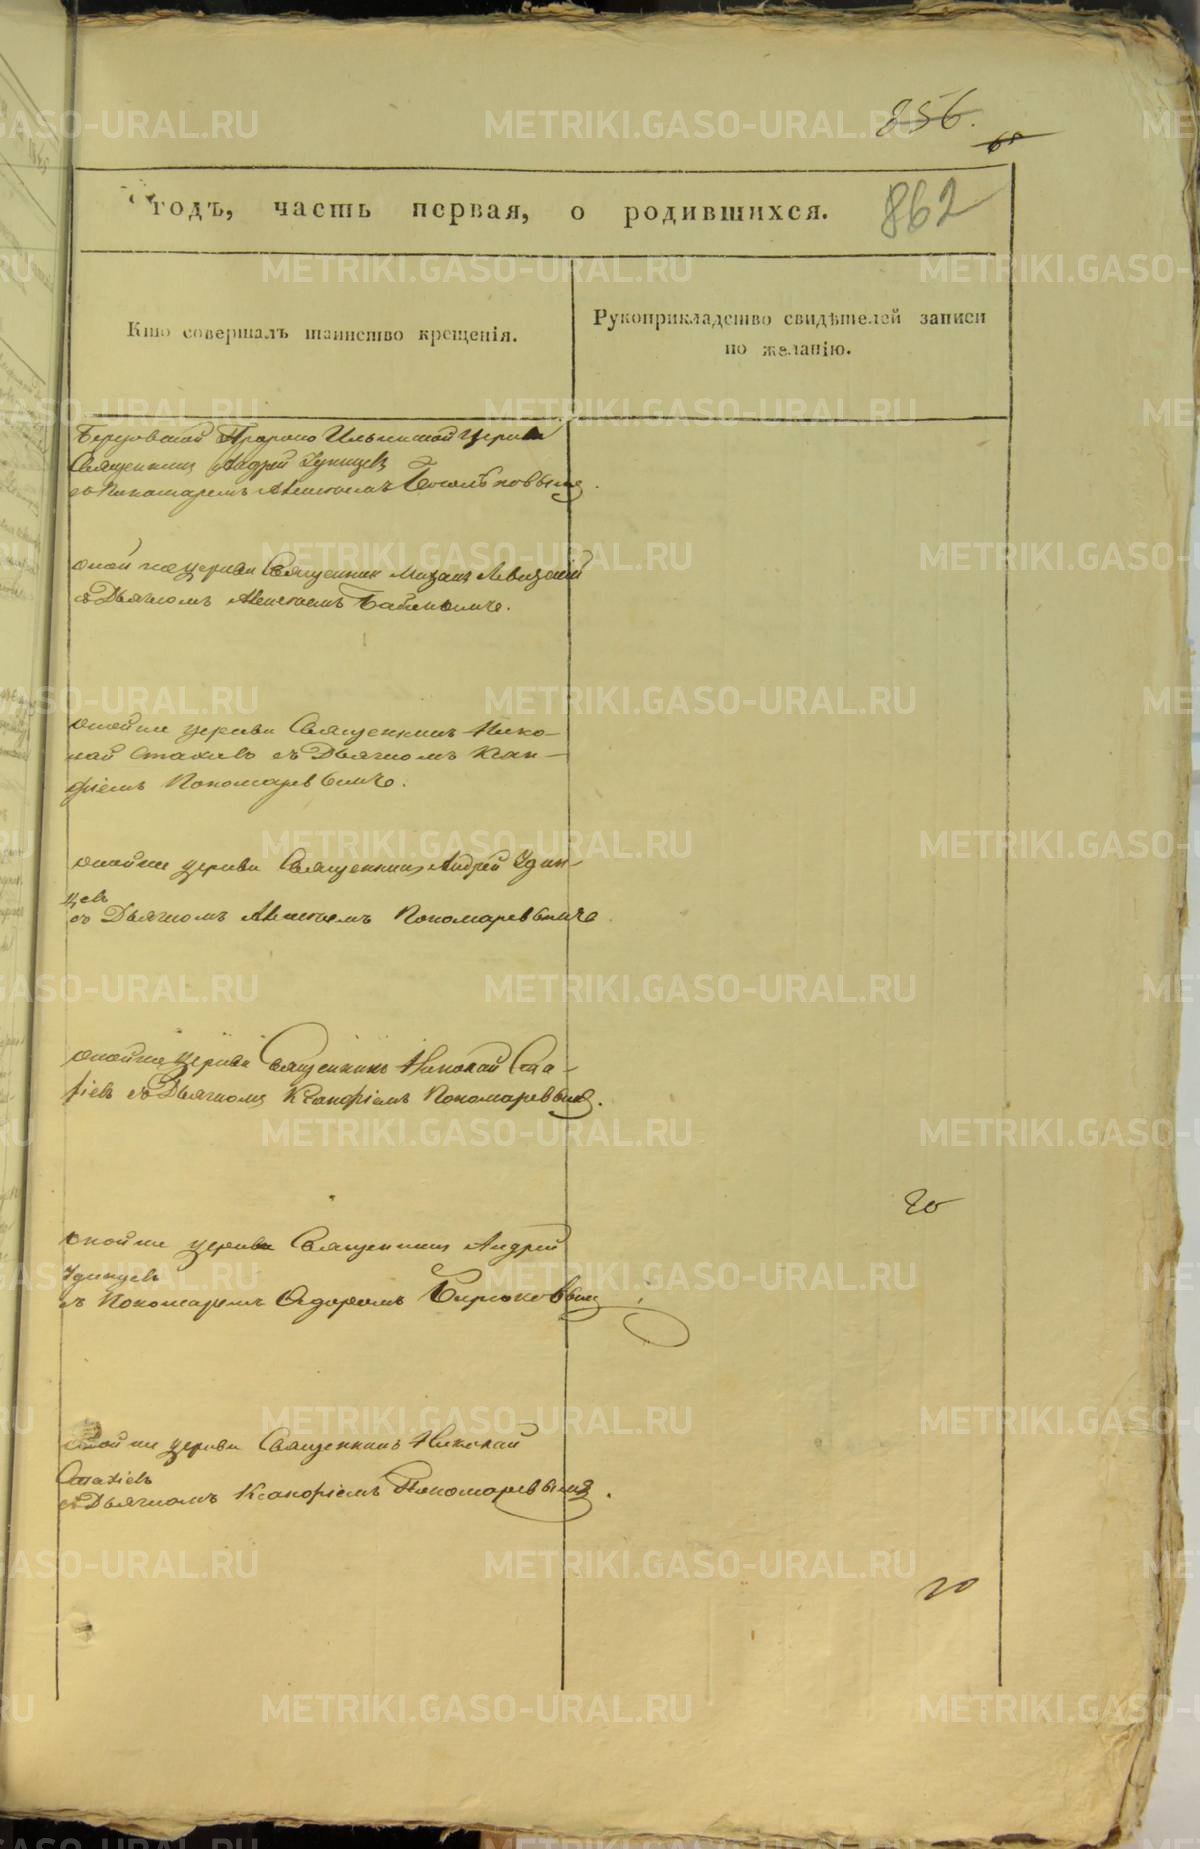 856.
68
годъ, часть первая, о родившихся. 862
Кто совершалъ таинство крещенія.
Рукоприкладство свидѣтелей записи
по желанію.
Пророко Ильинской церкви
Священникъ Андрей Удинцевъ
съ Пономаремъ Алексѣемъ
оной же церкви Священникъ Левицкій
съ Дьячкомъ Алексѣемъ
оной же церкви Священникъ Нико-
лай съ Дьячкомъ Ксан-
фіемъ Пономаревымъ.
оной же церкви Священникъ Андрей Удин-
цевъ
съ Дьячкомъ Алексѣемъ Пономаревымъ
оной же церкви Священникъ Николай Ста-
хіевъ съ Дьячкомъ Ксанфіемъ Пономаревымъ.
20
оной же церкви Священникъ Андрей
Удинцевъ
съ Пономаремъ Бирюковымъ
оной же церкви Священникъ Николай
Стахіевъ
съ Дьячкомъ Ксанфіемъ Пономаревымъ.
20
METRIKI.GASO-URAL.RU